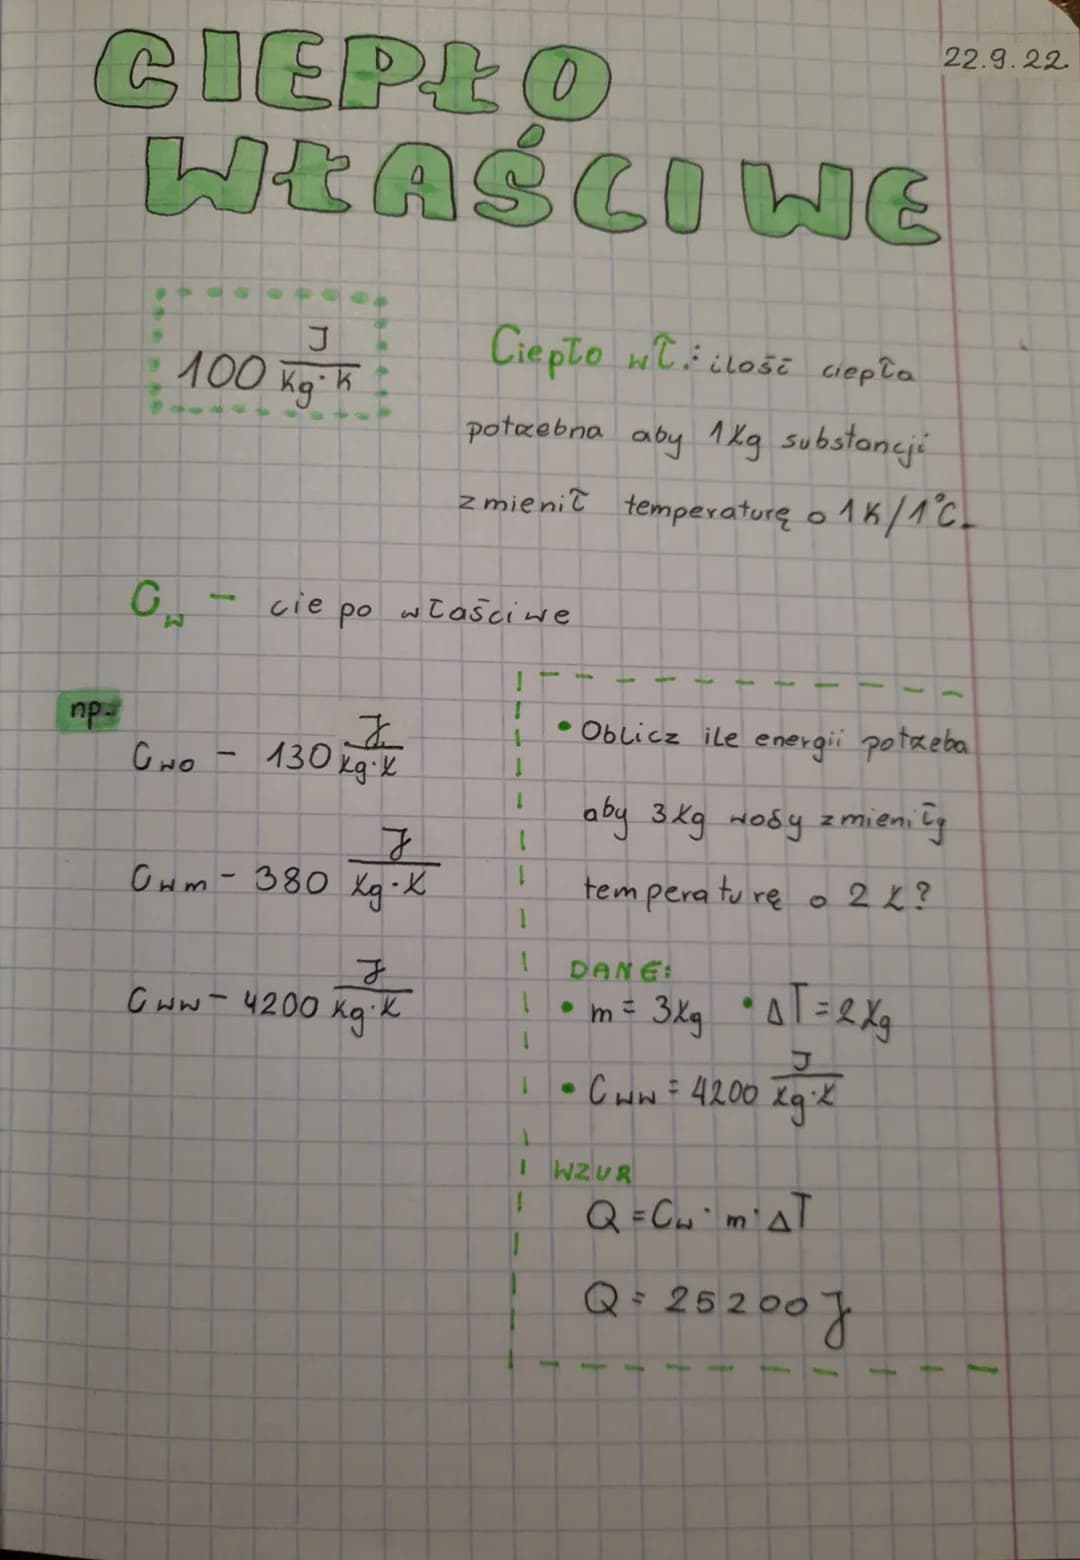 CIEPŁO
22.9.22
WŁAŚCIWE
100 J/kg·K
Ciepło wł.: ilość ciepła
potrzebna aby 1kg substancji
zmienił temperaturę o 1K/1°C.
Cw - ciepo właściwe
np.
Cwo - 130 J/kg·K
Cwm - 380 J/kg·K
Cww - 4200 J/kg·K
• Oblicz ile energii potrzeba
aby 3kg wody zmieniły
temperaturę o 2 K?
DANE:
• m = 3kg • ΔT = 2kg
• Cww = 4200 J/kg·K
WZUR
Q = Cw · m · ΔT
Q = 25200 J